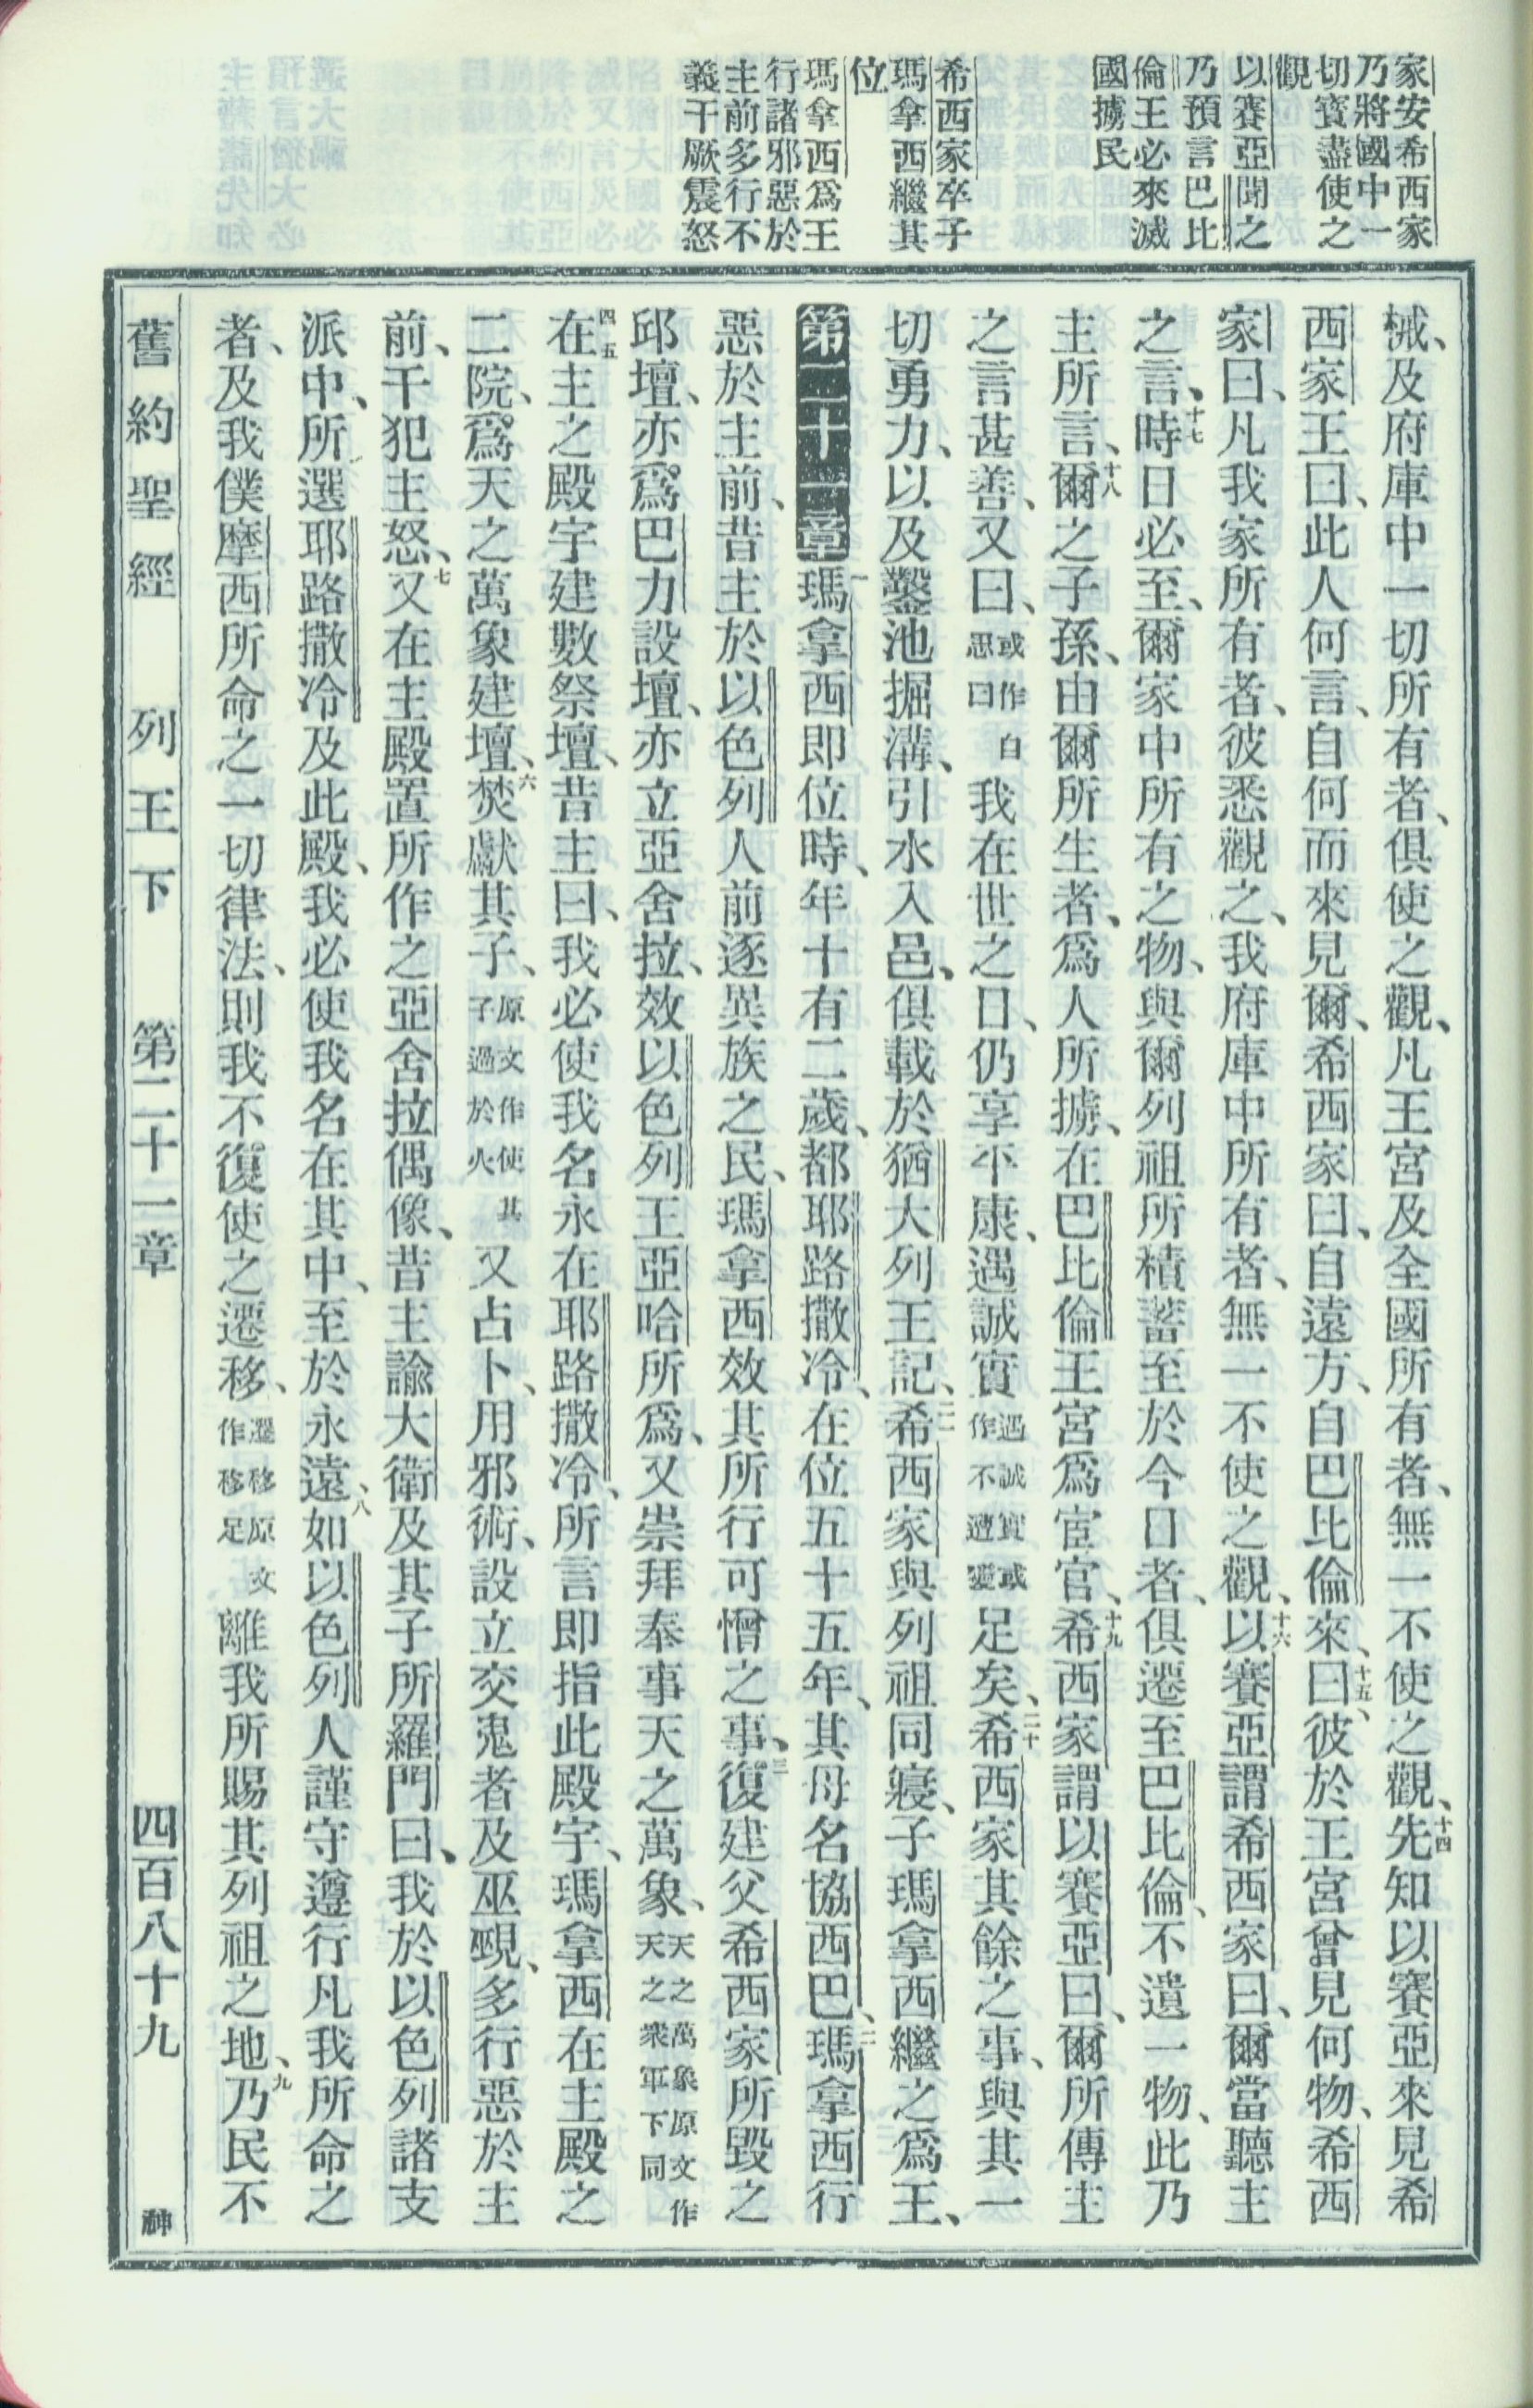 家安希西家
乃將國中一
切寳盡使之
觀
以賽亞聞之
乃預言巴比
倫王必來滅
國擄民
希西家卒子
瑪拿西繼其
位
瑪拿西爲王
行諸邪惡於
主前多行不
義干厥震怒
械、及府庫中一切所有者、俱使之觀、凡王宮及全國所有者、無一不使之觀、十四先知以賽亞來見希
西家王曰、此人何言、自何而來見爾、希西家曰、自遠方、自巴比倫來、十五曰、彼於王宮曾見何物、希西
家曰、凡我家所有者、彼悉觀之、我府庫中所有者、無一不使之觀、十六以賽亞謂希西家曰、爾當聽主
之言、十七時日必至、爾家中所有之物、與爾列祖所積蓄至於今日者、俱遷至巴比倫、不遺一物、此乃
主所言、十八爾之子孫、由爾所生者、爲人所擄、在巴比倫王宮爲宦官、十九希西家謂以賽亞曰、爾所傳主
之言甚善、又曰、或作自思曰我在世之日、仍享平康、遇誠實遇誠實或作不遭變足矣、二十希西家其餘之事、與其一
切勇力、以及鑿池掘溝、引水入邑、俱載於猶大列王記、二一希西家與列祖同寢、子瑪拿西繼之爲王、
第二十一章一瑪拿西即位時、年十有二歲、都耶路撒冷、在位五十五年、其母名協西巴、二瑪拿西行
惡於主前、昔主於以色列人前逐異族之民、瑪拿西效其所行可憎之事、三復建父希西家所毀之
邱壇、亦爲巴力設壇、亦立亞舍拉、效以色列王亞哈所爲、又崇拜奉事天之萬象、天之萬象原文作天之衆軍下同
四五在主之殿宇建數祭壇、昔主曰、我必使我名永在耶路撒冷、所言即指此殿宇、瑪拿西在主殿之
二院、爲天之萬象建壇、六焚獻其子、原文作使其子過於火又占卜、用邪術、設立交鬼者及巫覡、多行惡於主
前、干犯主怒、七又在主殿置所作之亞舍拉偶像、昔主諭大衛及其子所羅門曰、我於以色列諸支
派中、所選耶路撒冷及此殿、我必使我名在其中、至於永遠、八如以色列人謹守遵行凡我所命之
者、及我僕摩西所命之一切律法、則我不復使之遷移、遷移原文作移足離我所賜其列祖之地、九乃民不
舊約聖經　列王下　第二十一章　四百八十九　神